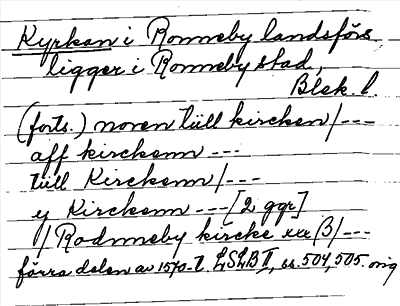 Kyrkan i Ronneby landsförs.
ligger i Ronneby stad,
Blek. l.
(forts.) noren tüll kircken/---
aff kirckenn ---
tüll Kirckenn/---
y Kirckenn --- [2 ggr]
/Rodnneby kircke xx (3/---
förra delen av 1570-t. LSLB II, ss. 504, 505. orig